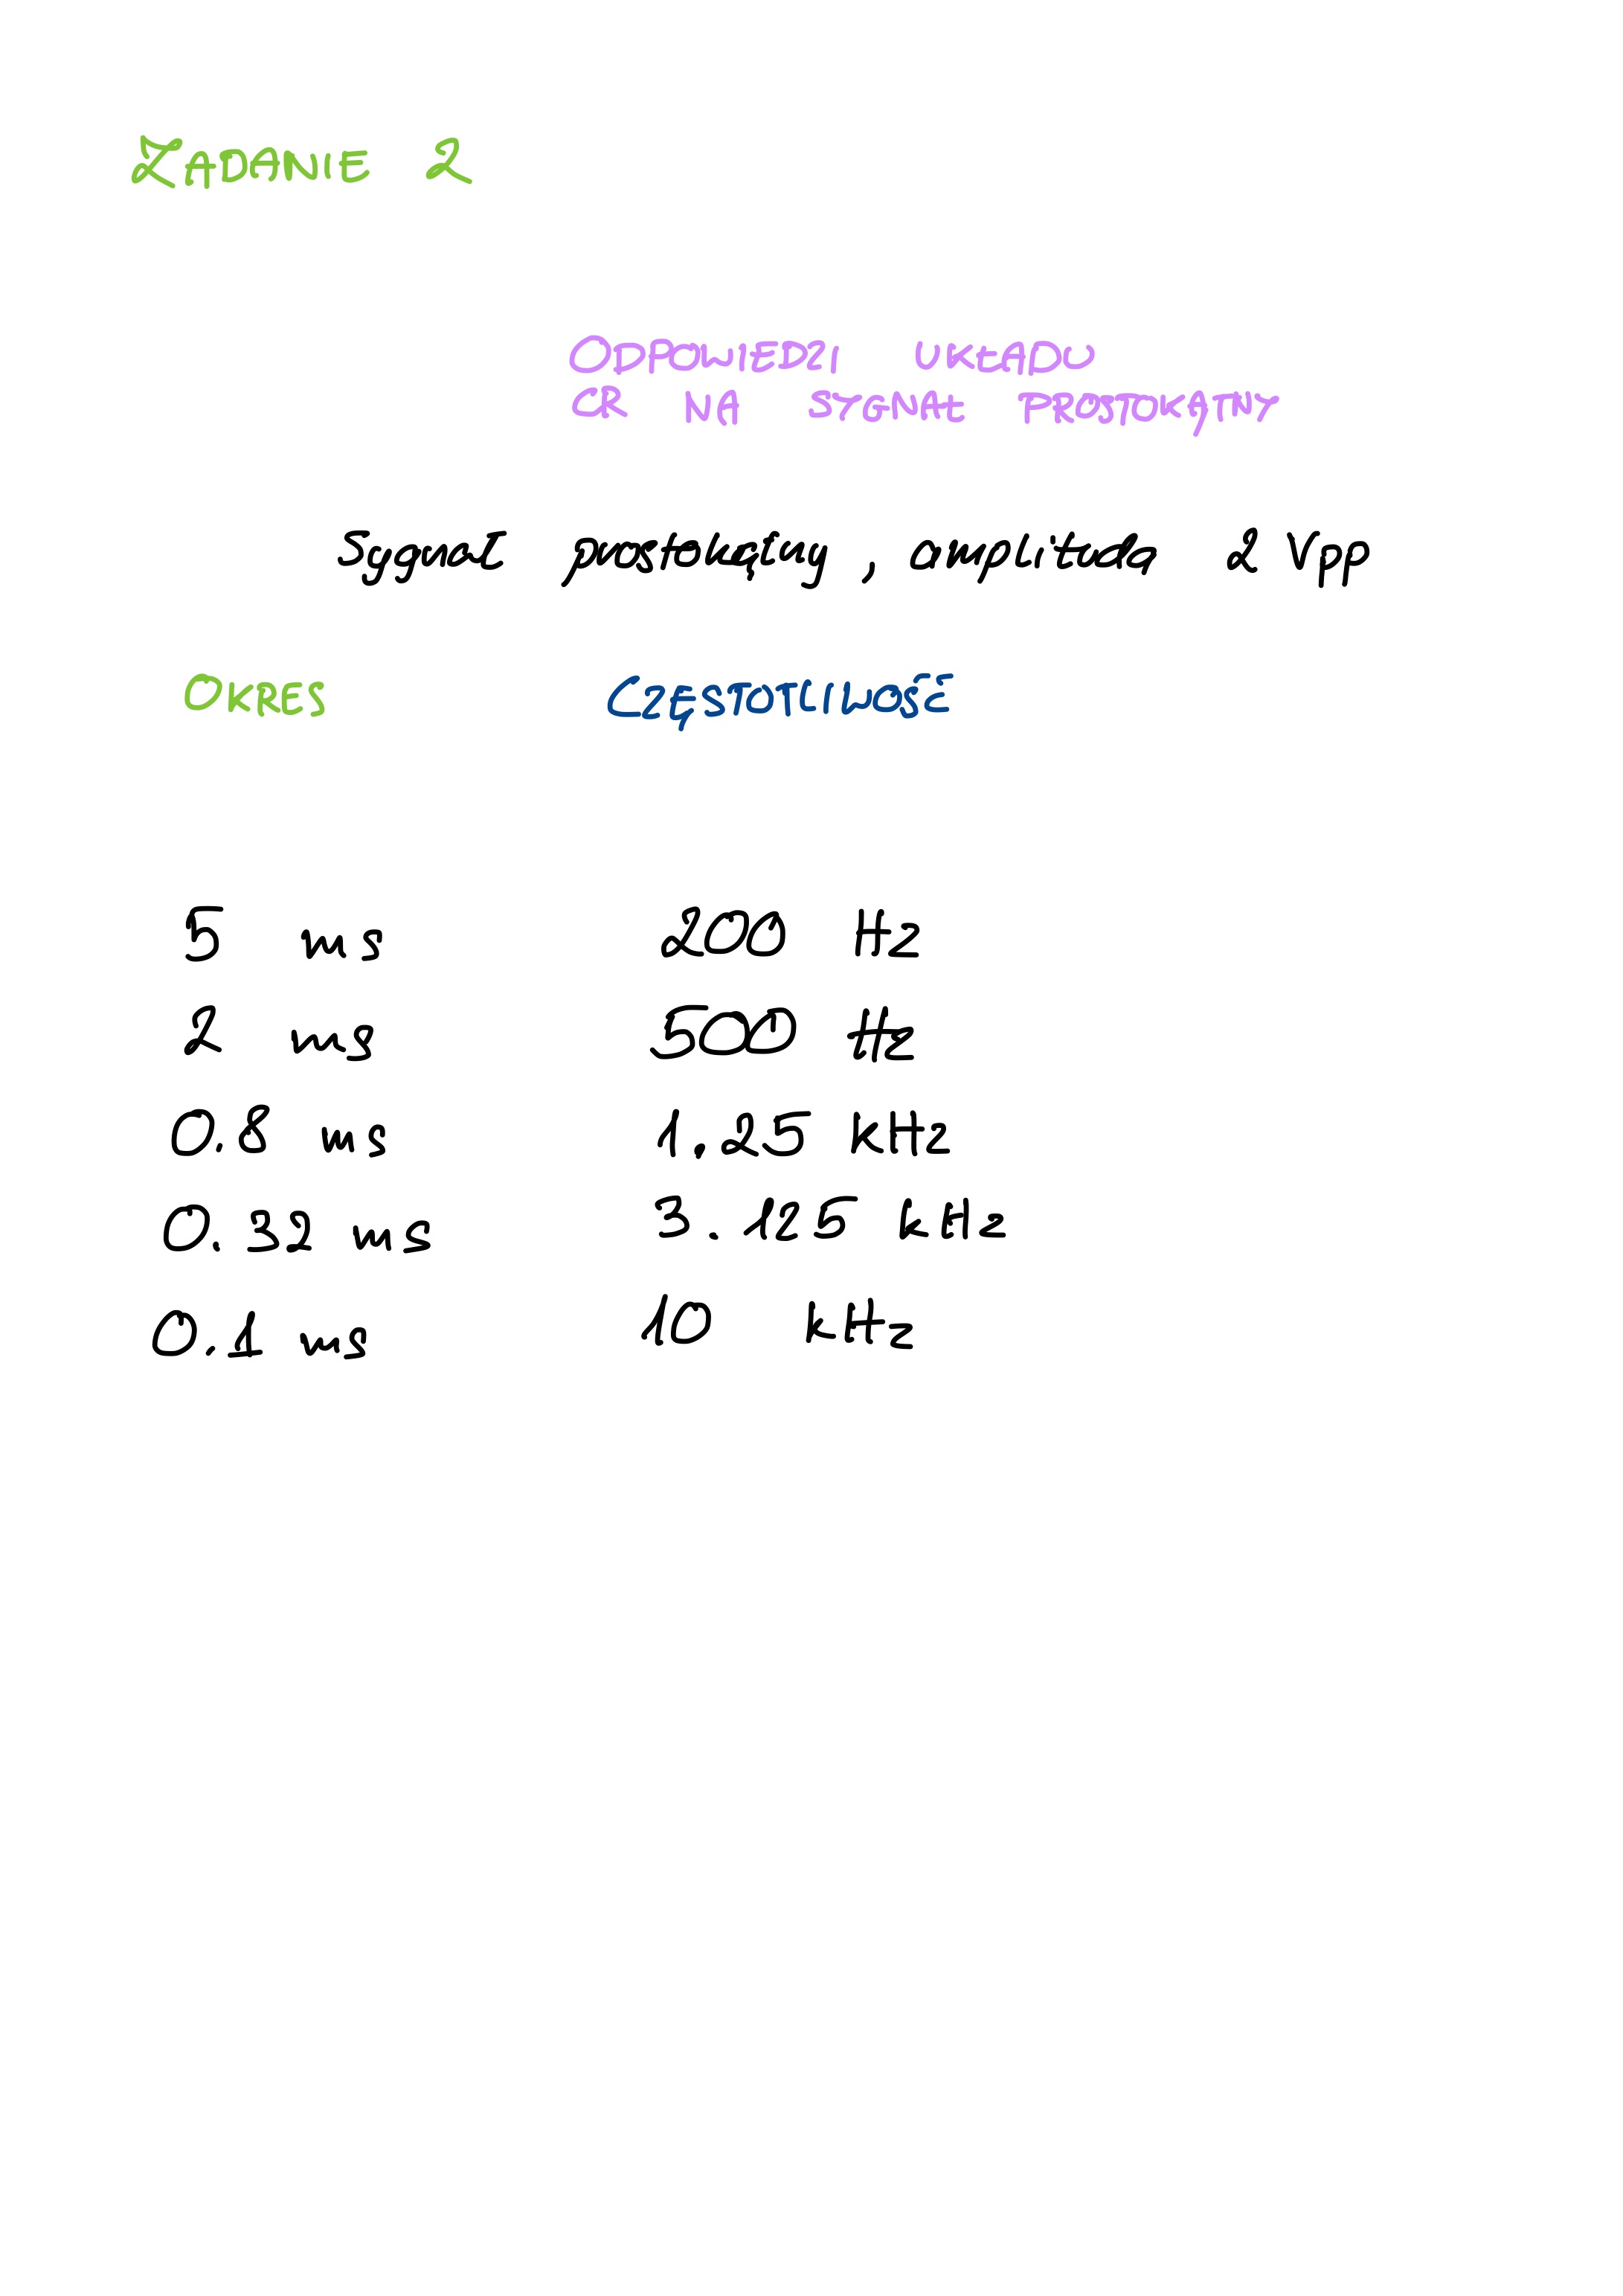 ZADANIE 2
ODPOWIEDZI UKŁADU
CR NA SYGNAŁ PROSTOKĄTNY
Sygnał prostokątny, amplituda 2 Vpp
OKRES CZĘSTOTLIWOŚĆ
5 ms 200 Hz
2 ms 500 Hz
0.8 ms 1.25 kHz
0.32 ms 3.125 kHz
0.1 ms 10 kHz